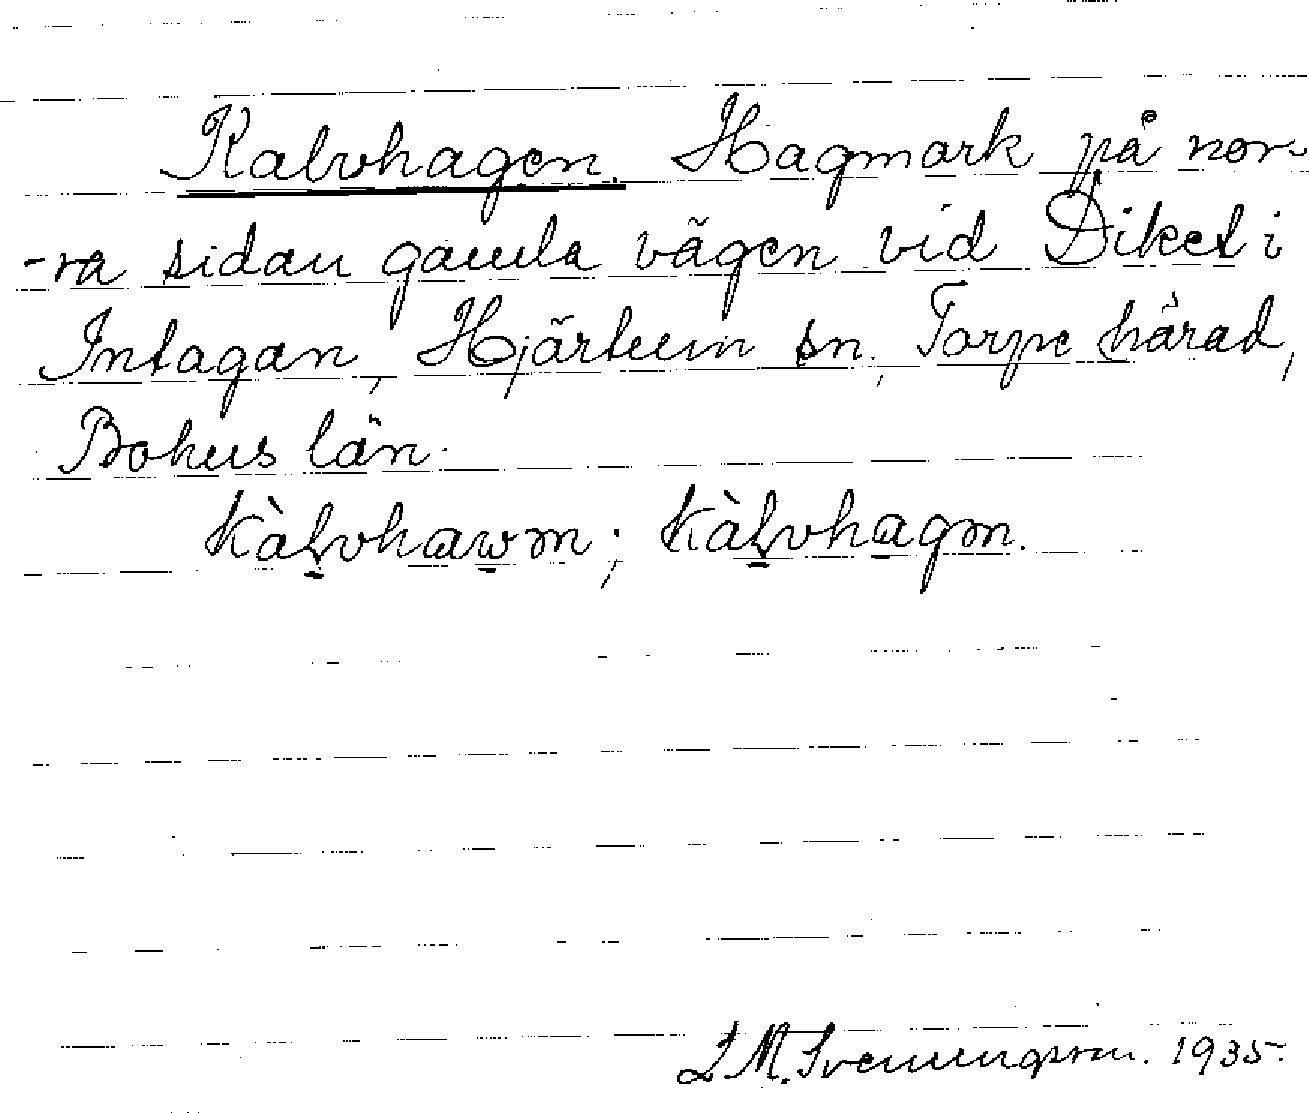 Kalvhagen. Hagmark på nor-
-ra sidan gamla vägen vid Diket i
Intagan, Hjärtum sn, Torpe härad,
Bohus län.
kàlvhawm; kàlvhagm.
L M. Svenungsson. 1935.